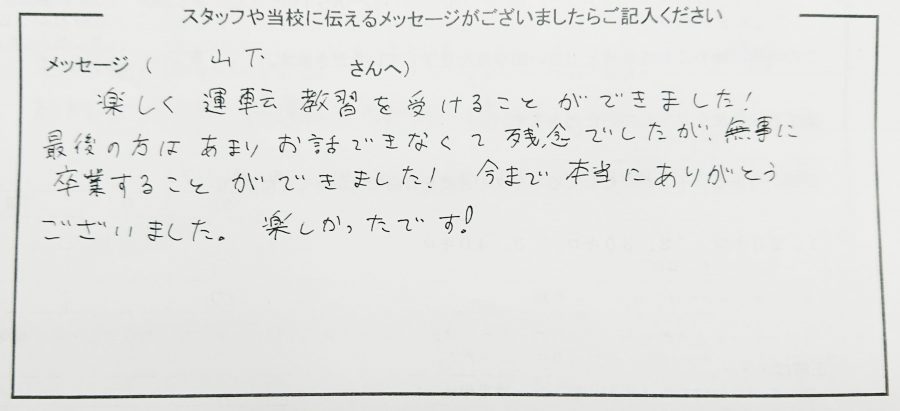 スタッフや当校に伝えるメッセージがございましたらご記入ください
メッセージ( 山下 さんへ)
楽しく 運転 教習を受けることができました!
最後の方は あまり お話できなくて 残念でしたが、無事に
卒業することができました! 今まで 本当にありがとう
ございました。 楽しかったです!